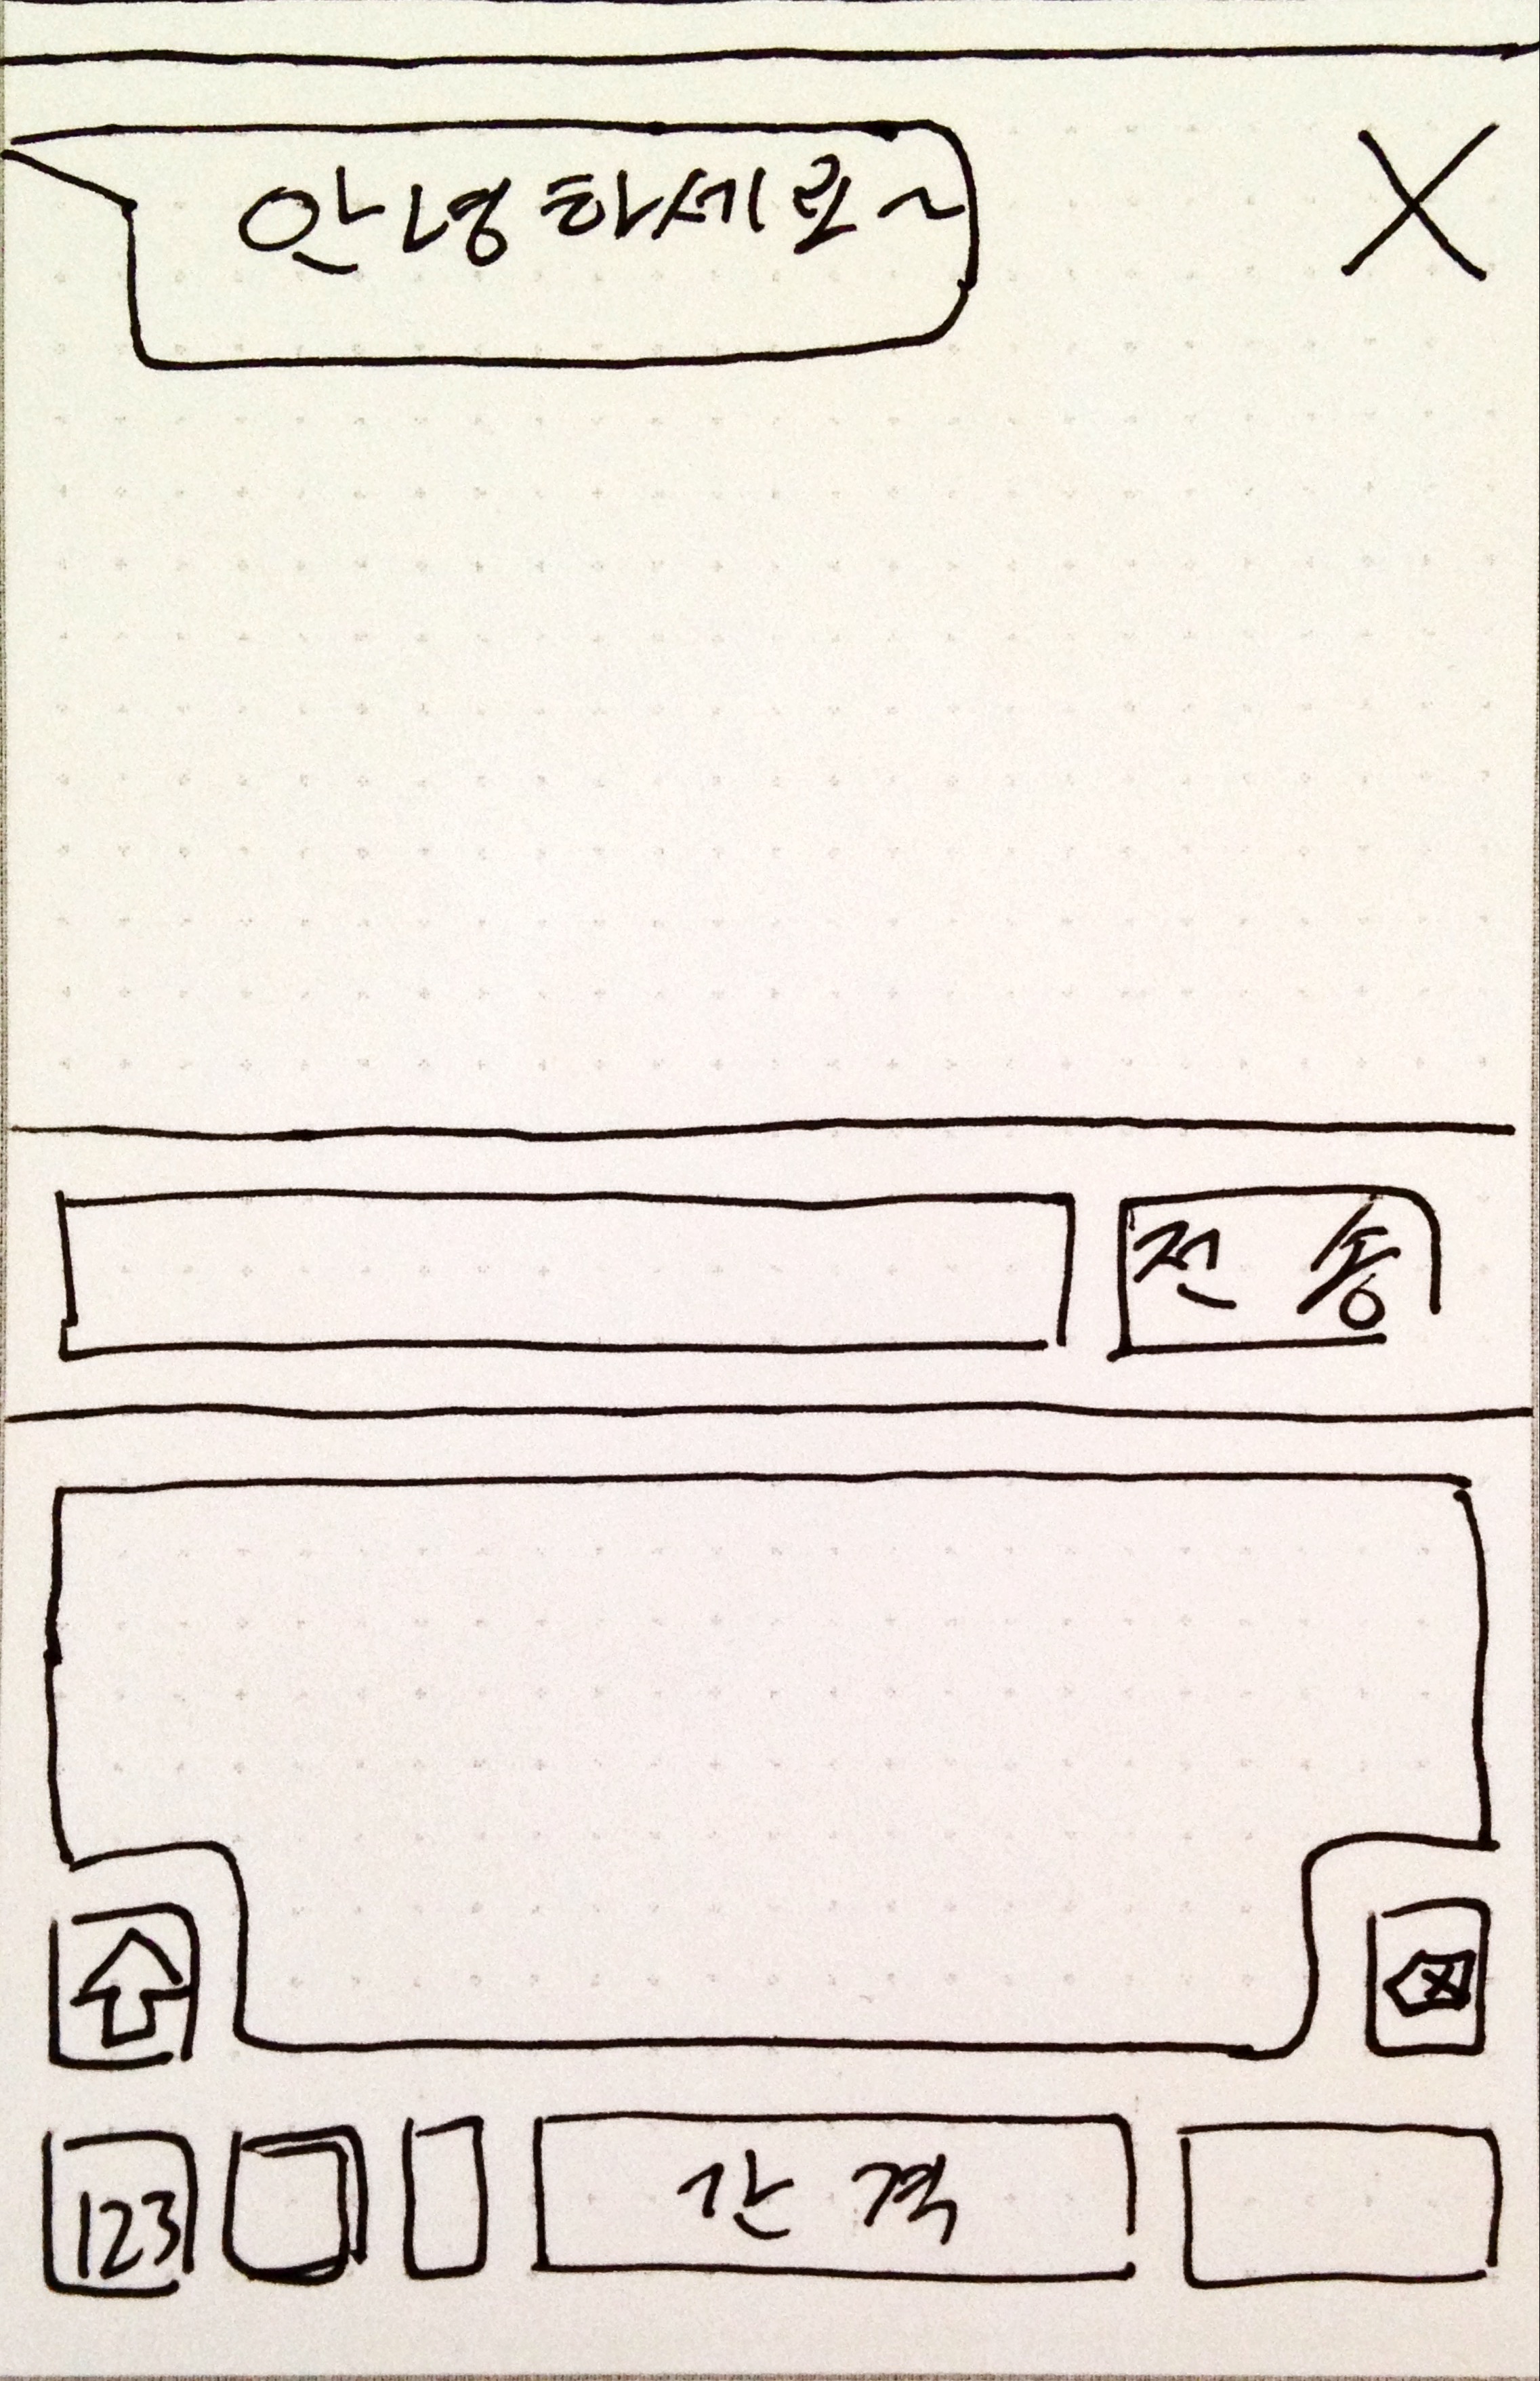 안녕하세요~
전송
123
간격